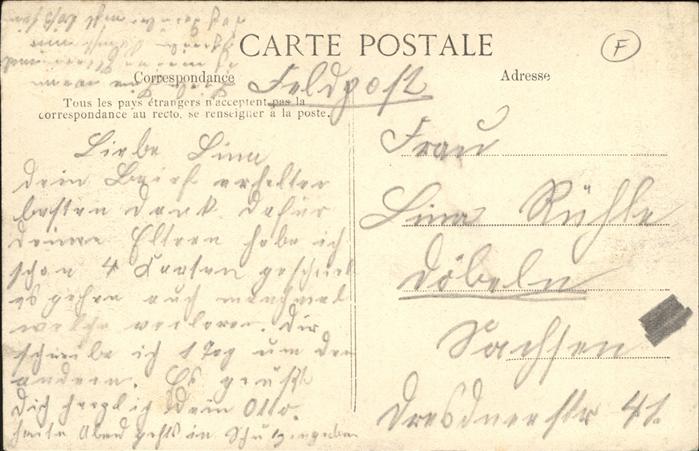 CARTE POSTALE
Correspondance
Adresse
Tous les pays étrangers n'acceptent pas la
correspondance au recto, se renseigner à la poste.
F
Feldpost
Frau
Lina Rühle
Döbeln
Sachsen
Dresdnerstr 41.
Liebe Lina
dein Brief erhalten
besten Dank dafür
deine Eltern habe ich
schon 4 Karten geschickt
es gehen auch manchmal
welche verloren. Dir
schreibe ich 1 Tag um den
andern. Es grüßt
Dich herzlich Dein Otto.
heute Abend gehts in Schützengraben